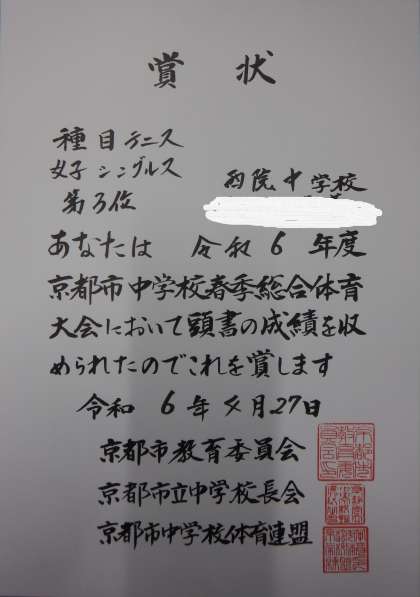 賞状
種目テニス
女子シングルス
第3位
西院中学校
あなたは 令和6年度
京都市中学校春季総合体育
大会において頭書の成績を収
められたのでこれを賞します
令和6年4月27日
京都市教育委員会
京都市立中学校長会
京都市中学校体育連盟